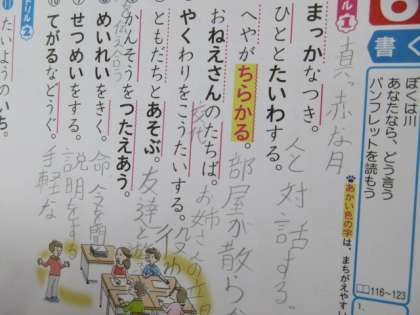 書く
ぼくは川
あなたなら、どう言う
パンフレットを読もう
116~123
あかい色の字は、まちがえやすい
まっかなつき。
真っ赤な月
ひととたいわする。
人と対話する。
へやがちらかる。
部屋が散らか
おねえさんのたちば。
お姉さんの立
やくわりをこうたいする。
役わ
ともだちとあそぶ。
友達と遊
かんそうをつたえあう。
めいれいをきく。
命令を聞
せつめいをする。
説明をする
てがるなどうぐ。
手軽な
たいようのいち。
ドリル2